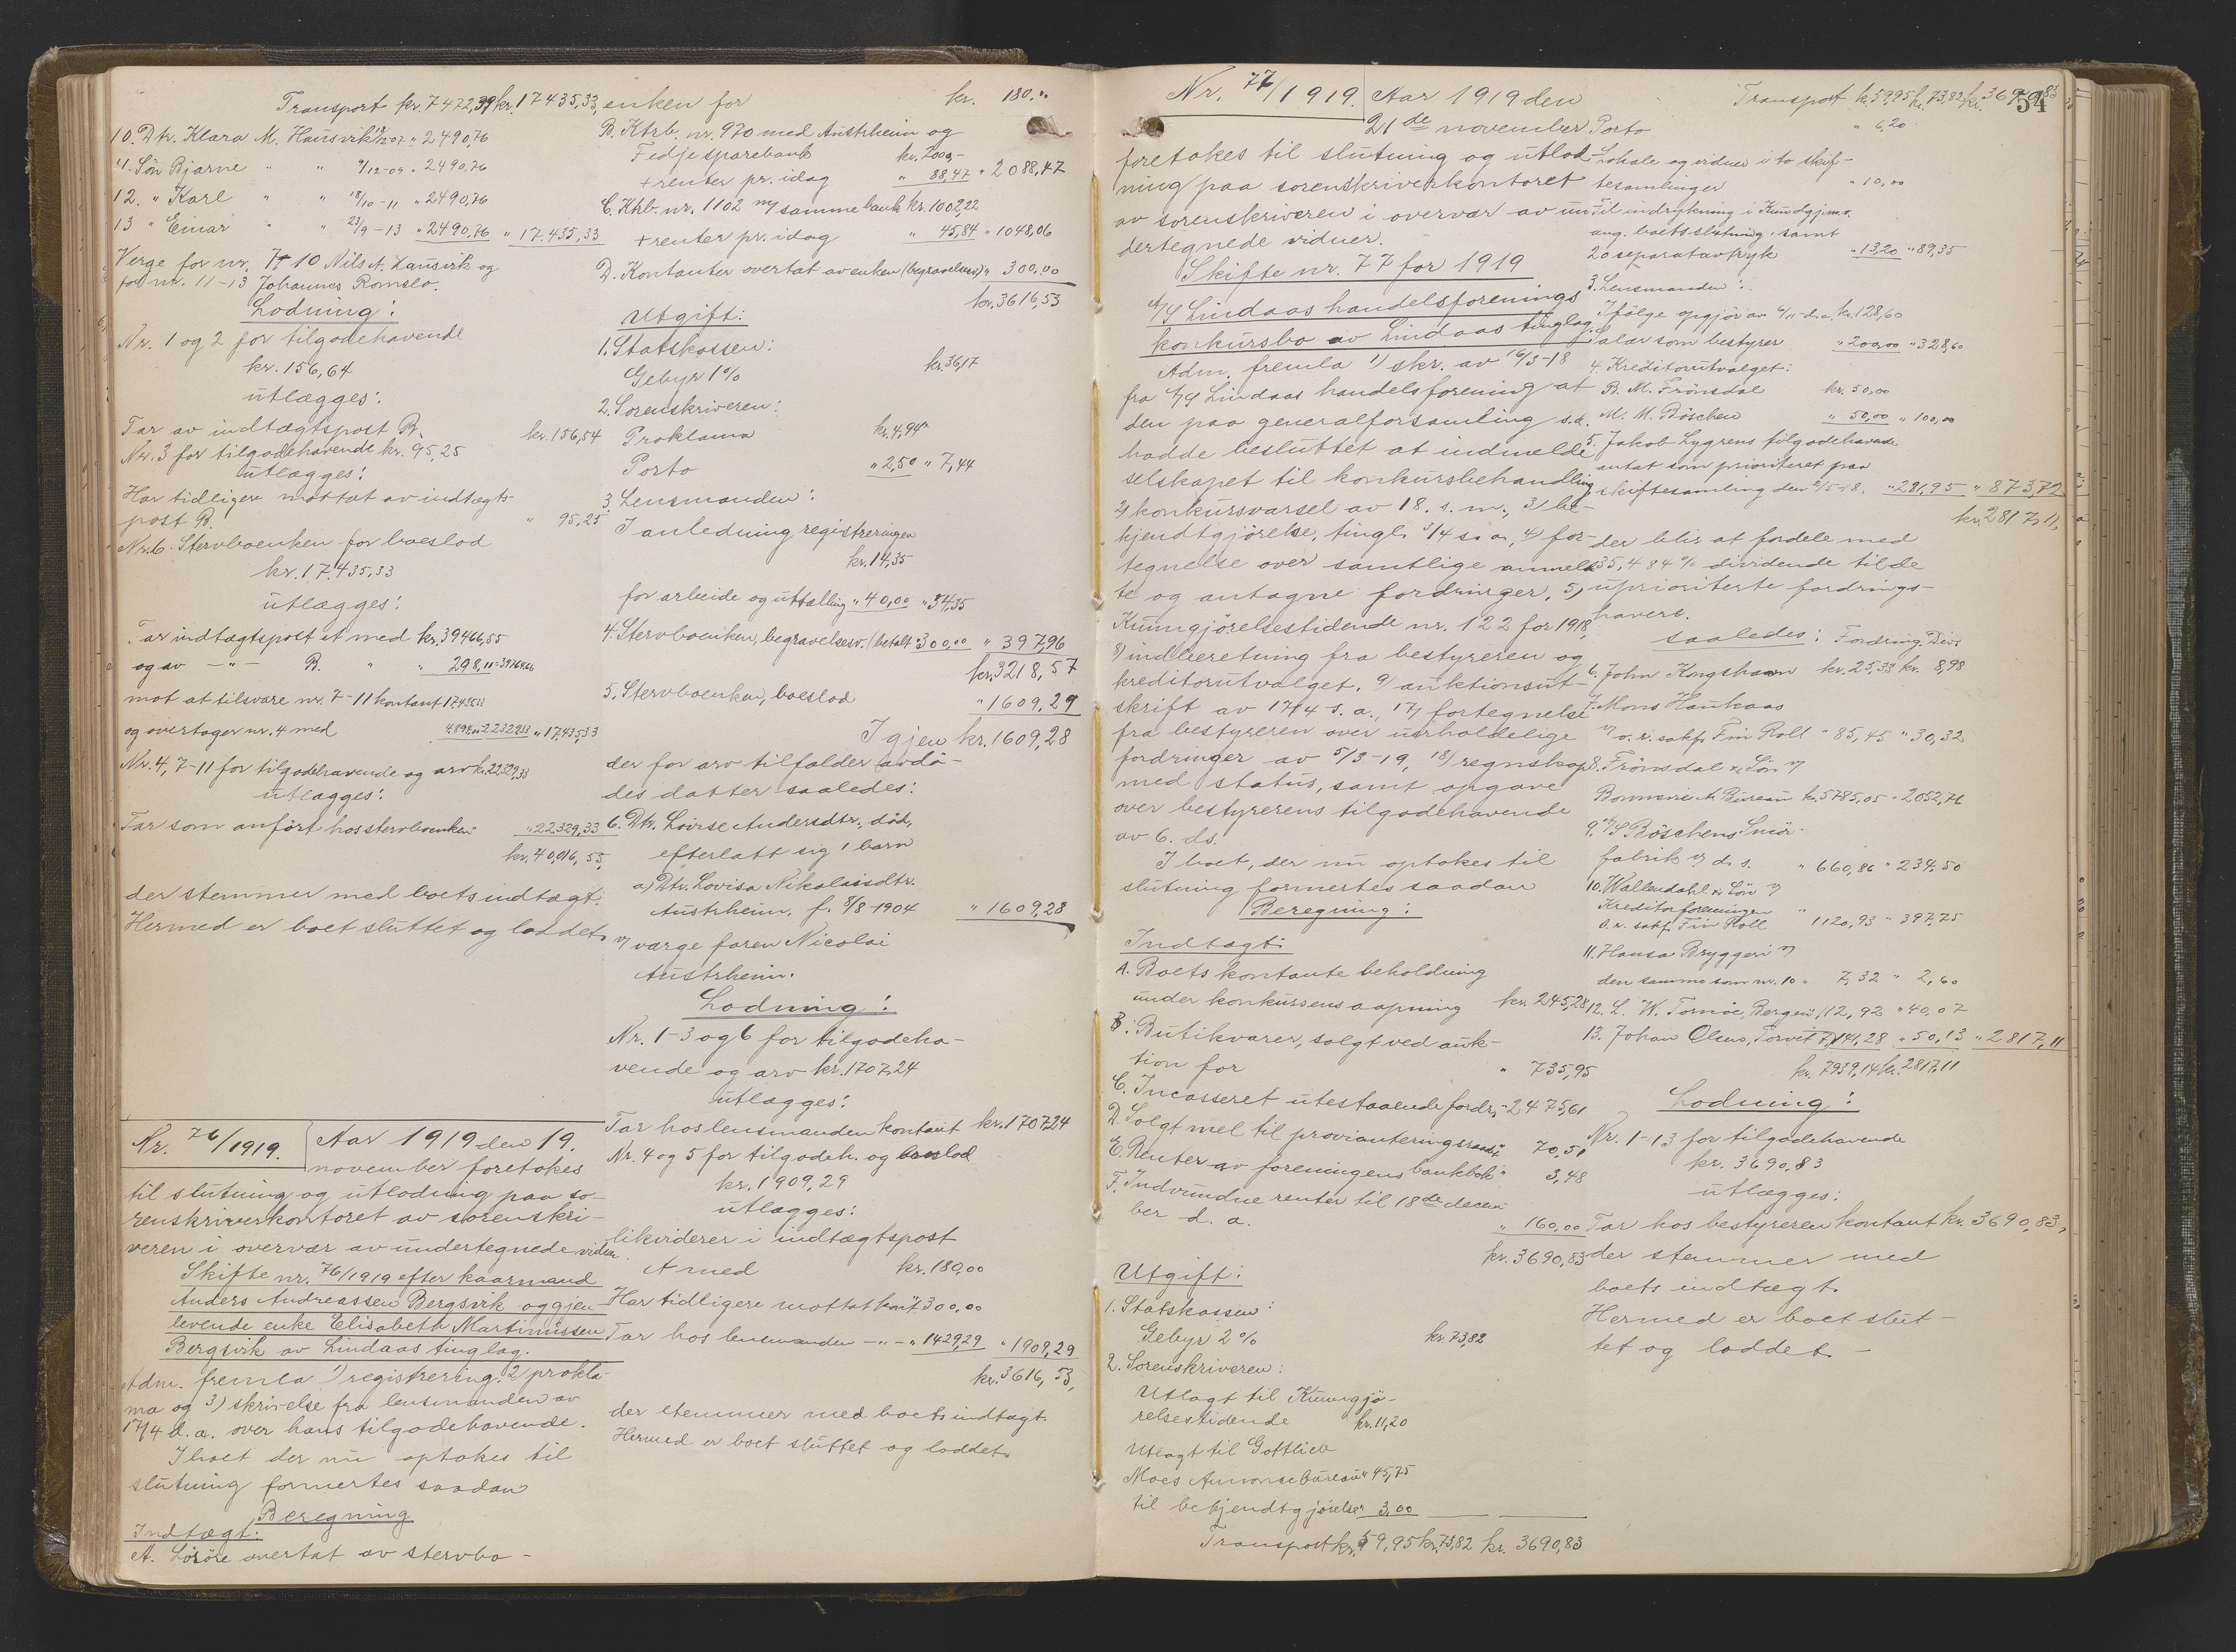 Transport kr. 7472,39 kr. 17435,33,
10. Dtr. Klara M. Hausvik 12/2 07 " 2490,76
11. Søn Bjarne " " 9/12-09 " 2490,76
12. " Karl " " 18/10-11 " 2490,76
13 " Einar " " 23/9-13 " 2490,76 " 17.435,33
Verge for nr. 7 10 Nils A. Hausvik og
for nr. 11-13 Johannes Romslo.
Lodning:
Nr. 1 og 2 for tilgodehavende
kr. 156,64
utlægges:
Tar av indtægtspost B. kr. 156,54
Nr. 3 for tilgodehavende kr. 95,25
utlægges:
Har tidligere mottat av indtægts-
post B. " 95,25
Nr. 6. Stervboenken for boeslod
kr. 17.435,33
utlægges:
Tar indtægtspost A med kr. 39466,55
og av -"- B. " " 298,11 = 39764,66
mot at tilsvare nr. 7-11 kontant 17.435,33
og overtager nr. 4 med 4.894,00 22329,33 " 17.435,33
Nr. 4, 7-11 for tilgodehavende og arv kr. 22329,33
utlægges:
Tar som anført hos stervboenken " 22329,33
kr. 40,016,55,
der stemmer med boets indtægt.
Hermed er boet sluttet og loddet.
Nr. 76/1919. Aar 1919 den 19.
november foretokes
til slutning og utlodning paa so-
renskriverkontoret av sorenskri-
veren i overvær av undertegnede vidner.
Skifte nr. 76/1919 efter kaarmand
Anders Andreassen Bergsvik og gjen-
levende enke Elisabeth Martinussen
Bergsvik av Lindaas tinglag.
Adm. fremla 1) registrering, 2) prokla-
ma og 3) skrivelse fra lensmanden av
17/4 d. a. over hans tilgodehavende.
I boet der nu optokes til
slutning formertes saadan
Beregning
Indtægt:
A. Løsøre overtat av stervbo-
enken for kr. 180."
B. Ktrb. nr. 970 med Austrheim og
Fedje sparebank kr. 2000,-
+ renter pr. idag " 88,47 " 2088,47
C. Ktrb. nr. 1102 m/ samme bank kr. 1002,22
+ renter pr. idag " 45,84 " 1048,06
D. Kontanter overtat av enken (begravelsesv.) " 300,00
kr. 3616,53
Utgift:
1. Statskassen:
Gebyr 1% kr. 36,17
2. Sorenskriveren:
Proklama kr. 4,94
Porto " 2,50 " 7,44
3. Lensmanden:
I anledning registreringen
kr. 14,35
for arbeide og uttælling " 40,00 " 54,35
4. Stervboenken, begravelsesv. (betalt " 300,00 " 397,96
kr. 3218,57
5. Stervboenken, boeslod " 1609,29
Igjen kr. 1609,28
der for arv tilfalder avdø-
des datter saaledes:
6. Dtr. Lovise Andersdtr., død,
efterlatt sig 1 barn
a) Dtr. Lovisa Nikolaisdtr.
Austrheim, f. 8/8-1904 " 1609,28
v/ værge faren Nicolai
Austrheim.
Lodning:
Nr. 1-3 og 6 for tilgodeha-
vende og arv kr. 1707,24
utlægges:
Tar hos lensmanden kontant kr. 1707,24
Nr. 4 og 5 for tilgodeh. og boeslod
kr. 1909,29
utlægges:
likviderer i indtægtspost
A med kr. 180,00
Har tidligere mottat kont. " 300,00
Tar hos lensmanden -"- " 1429,29 " 1909,29
kr. 3616,53,
der stemmer med boets indtægt.
Hermed er boet sluttet og loddet.
Nr. 77/1919. Aar 1919 den
21de november
foretokes til slutning og utlod-
ning paa sorenskriverkontoret
av sorenskriveren i overvær av un-
dertegnede vidner.
Skifte nr. 77 for 1919
A/S Lindaas handelsforenings
konkursbo av Lindaas tinglag.
Adm. fremla 1) skr. av 16/3-18
fra A/S Lindaas handelsforening at
den paa generalforsamling s.d.
hadde besluttet at indmelde
selskapet til konkursbehandling,
2) konkursvarsel av 18. s. m., 3) be-
kjendtgjørelse, tingl. 3/4 s. a., 4) for-
tegnelse over samtlige anmeld-
te og antagne fordringer, 5)
Kunngjørelsestidende nr. 122 for 1918,
8) indberetning fra bestyreren og
kreditorutvalget, 9) auktionsut-
skrift av 17/4 s. a., 17) fortegnelse
fra bestyreren over uerholdelige
fordringer av 5/3-19, 18) regnskap
med status, samt opgave
over bestyrerens tilgodehavende
av 6. ds.
I boet, der nu optokes til
slutning formertes saadan
Beregning:
Indtægt:
A. Boets kontante beholdning
under konkursens aapning kr. 245,28
B. Butikvarer, solgt ved auk-
tion for " 735,95
C. Incasseret utestaaende fordr. " 2475,61
D. Solgt mel til provianteringsraadet " 70,51
E. Renter av foreningens bankbok " 3,48
F. Indvundne renter til 18de decem-
ber d. a. " 160,00
kr. 3690,83
Utgift:
1. Statskassen:
Gebyr 2% kr. 73,82
2. Sorenskriveren:
Utlagt til Kunngjø-
relsestidende kr. 11,20
Utlagt til Gottlieb
Moes Annoncebureau " 45,75
til bekjendtgjørelse 3,00
Transport kr. 59,95 kr. 73,82 kr. 3690,83
54
Transport kr. 59,95 kr. 73,82 kr. 3690,83
Porto " 6,20
Lokale og vidner i to skif-
tesamlinger " 10,00
Til indrykning i Kundgj.ms.
ang. boets slutning, samt
20 separatavtryk " 13,20 " 89,35
3. Lensmanden:
Ifølge opgjør av 6/11 d. a. kr. 128,60
Salær som bestyrer " 200,00 " 328,60
4. Kreditorutvalget:
B. M. Frønsdal kr. 50,00
M. M. Bøschen " 50,00 " 100,00
5. Jakob Lygrens tilgodehavende
antat som prioriteret paa
skiftesamling den 2/5-18. " 281,95 " 873,72
kr. 2817,11,
der blir at fordele med
35,484% dividende til de
uprioriterte fordrings-
havere.
saaledes: Fordring. Div.
6. John Kongshavn kr. 25,33 kr. 8,98
7. Mons Haukaas
v/ o. r. sakf. Fin Roll " 85,45 " 30,32
8. Frønsdal & Søn v/
Bonnevie A. Bureau kr. 5785,05 " 2052,76
9. A/S Bøschens Smør-
fabrik v/ d. s. " 660,86 " 234,50
10. Wallendahl & Søn v/
Kreditorforeningen
o. r. sakf. Fin Roll " 1120,93 " 397,75
11. Hansa Bryggeri v/
den samme som nr. 10 " 7,32 " 2,60
12. L. W. Tornøe, Bergen, 112,92 " 40,07
13. Johan Olsen, Torvet 7, 141,28 " 50,13 " 2817,11
kr. 7939,14 kr. 2817,11
Lodning:
Nr. 1-13 for tilgodehavende
kr. 3690,83
utlægges:
Tar hos bestyreren kontant kr. 3690,83,
der stemmer med
boets indtægt.
Hermed er boet slut-
tet og loddet.